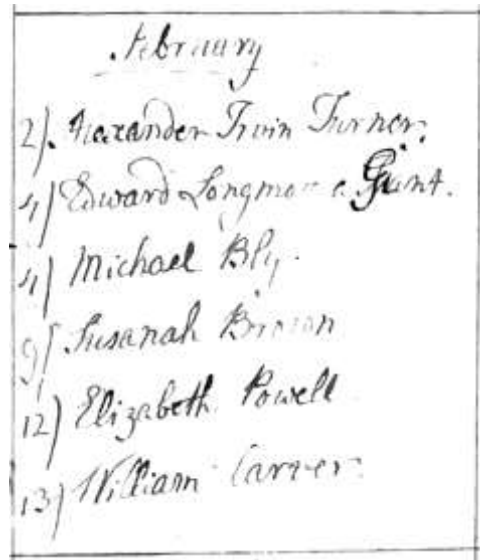 February
2). Alexander Irvin Turner.
4) Edward Longmore a Giant.
4) Michael Bly.
9) Susanah Brown
12) Elizabeth Powell
13) William Carver.